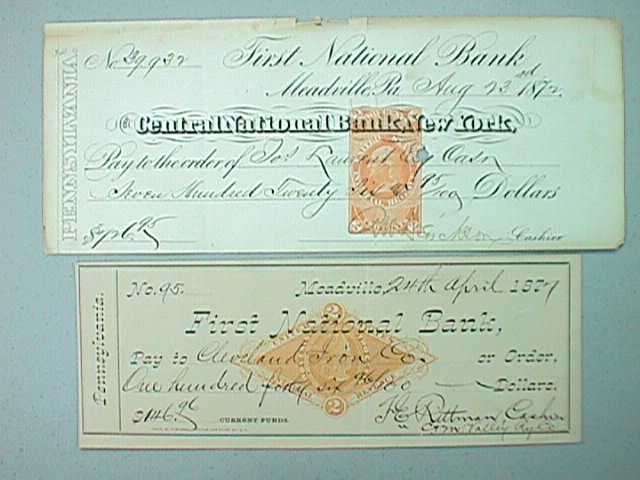 PENNSYLVANIA.
No 39932 First National Bank
Meadville, Pa. Aug 23rd 1872
Central National Bank, New York,
Pay to the order of Jos Cash
Seven Hundred Twenty Six & 95/100 Dollars
Cashier
Pennsylvania.
No. 95. Meadville, 24th April 1877
First National Bank,
Pay to Cleveland Iron Co. or Order,
One hundred forty six 96/100 Dollars.
$146.96 CURRENT FUNDS.
2 2
J E Rittman Cashier
Valley Ry Co